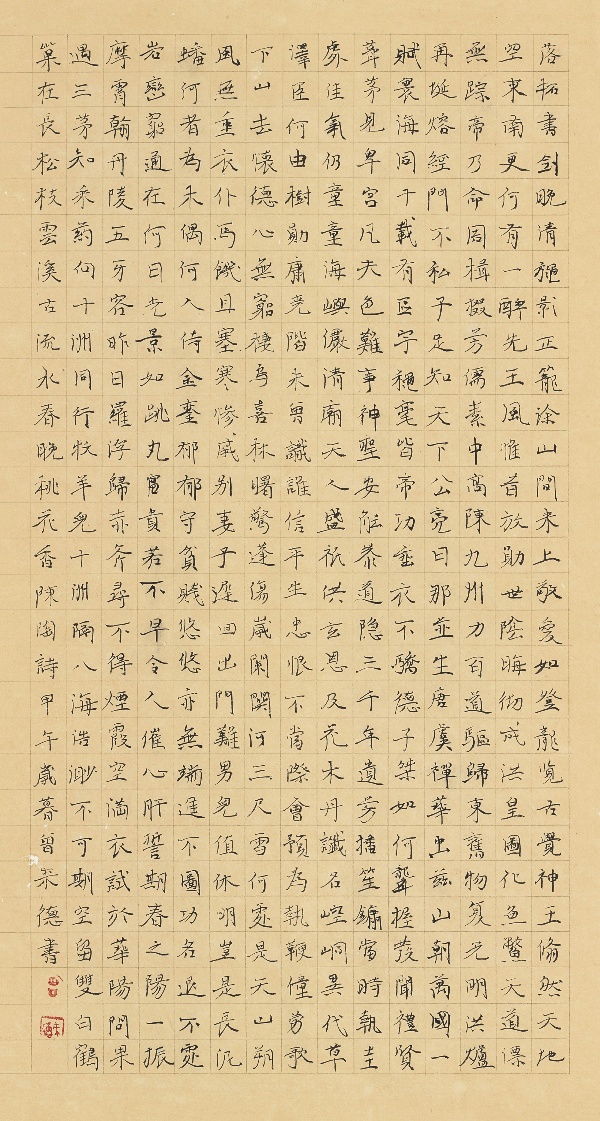 落拓書劍晚清穐影正籠涂山間来上敬愛如登龍覧古覺神王翛然天地
空東南更何有一醉先王風惟昔放勛世陰晦彻成洪皇圖化魚鱉天道漂
無踪帝乃命周楫掇芳儒素中高陳九州力百道驅歸東舊物复光明洪爐
再埏熔經門不私子足知天下公亮曰那並生唐虞禪華虫茲山朝萬國一
賦寰海同千載有區宇穐毫皆帝功垂衣不驕德子桀如何聾握發聞禮賢
葺茅見卑宮凡夫色難事神聖安能恭道隐三千年遺芳播笙鏞當時執圭
處佳氣仍童童海嶼儼清廟天人盛祗供玄恩及花木丹讖名崆峒異代草
澤臣何由樹勛庸堯階未曾識誰信平生忠恨不當際會預為執鞭僮勞歌
下山去懷德心無窮棲烏喜秋曙驚蓬傷歲闌關河三尺雪何處是天山朔
風無重衣仆馬餓且塞寒慘戚别妻子遲回出門難男兒值休明豈是長泥
蟠何者為木偶何人侍金鑾郁郁守貧賤悠悠亦無端進不圖功名退不處
岩巒窮通在何日光景如跳丸富貴若不早令人催心肝誓期春之陽一振
摩霄翰丹陵五牙客昨日羅浮歸赤斧尋不得煙霞空滿衣試於華陽問果
遇三茅知采药向十洲同行牧羊兒十洲隔八海浩渺不可期空留雙白鶴
巢在長松枝雲溪古流水春晚桃花香陳陶詩甲午歲暮曾采德書